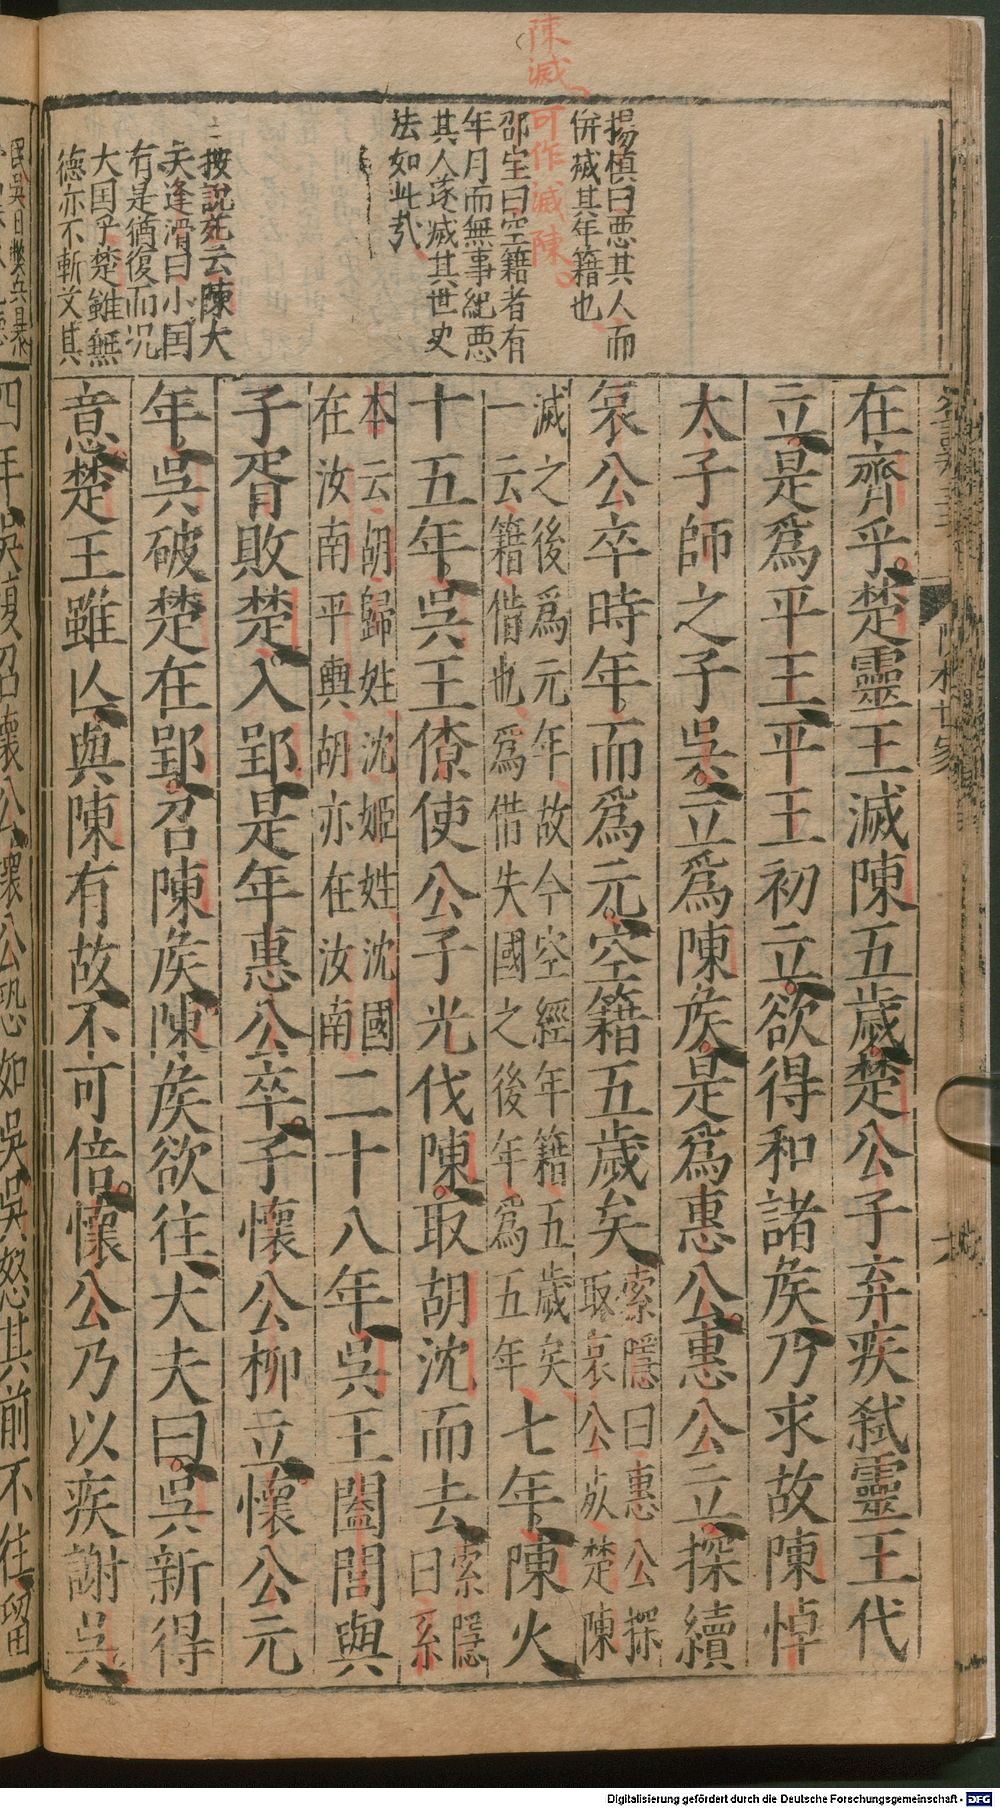 陳滅、可作滅陳。
揚慎曰悪其人而
併㓕其年籍也
邵宝曰空籍者有
年月而無事紀悪
其人遂㓕其世史
法如此㢤
按説苑云陳大
夫逢滑曰小国
有是猶復而况
大国乎楚雖無
德亦不斬艾其
在齊乎楚靈王滅陳五歲楚公子弃疾弑靈王代
立是爲平王平王初立欲得和諸矦乃求故陳悼
太子師之子吳立爲陳矦是爲惠公惠公立探續
哀公卒時年而爲元空籍五歲矣
索隱曰惠公探
取哀公死楚陳
滅之後爲元年故今空經年籍五歲矣
一云籍借也爲借失國之後年爲五年
七年陳火
十五年吳王僚使公子光伐陳取胡沈而去
索隱
曰系
本云胡歸姓沈姬姓沈國
在汝南平輿胡亦在汝南
二十八年吳王闔閭與
子胥敗楚入郢是年惠公卒子懷公柳立懷公元
年吳破楚在郢召陳矦陳矦欲往大夫曰吳新得
意楚王雖亾與陳有故不可倍懷公乃以疾謝吳
四年吳復召懷公懷公恐如吳吳怒其前不往留
Digitalisierung gefördert durch die Deutsche Forschungsgemeinschaft - DFG